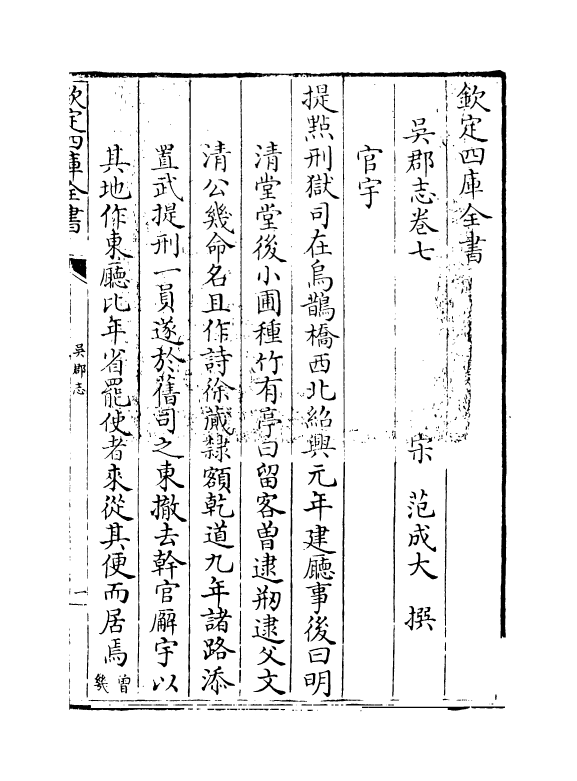 欽定四庫全書
吳郡志卷七
宋 范成大 撰
官宇
提㸃刑獄司在烏鵲橋西北紹興元年建廳事後曰明
清堂堂後小圃種竹有亭曰留客曾逮剏逮父文
清公幾命名且作詩徐蕆隸額乾道九年諸路添
置武提刑一員遂於舊司之東撤去幹官廨宇以
其地作東廳比年省罷使者來從其便而居焉
曾
幾
欽定四庫全書
吳郡志
一